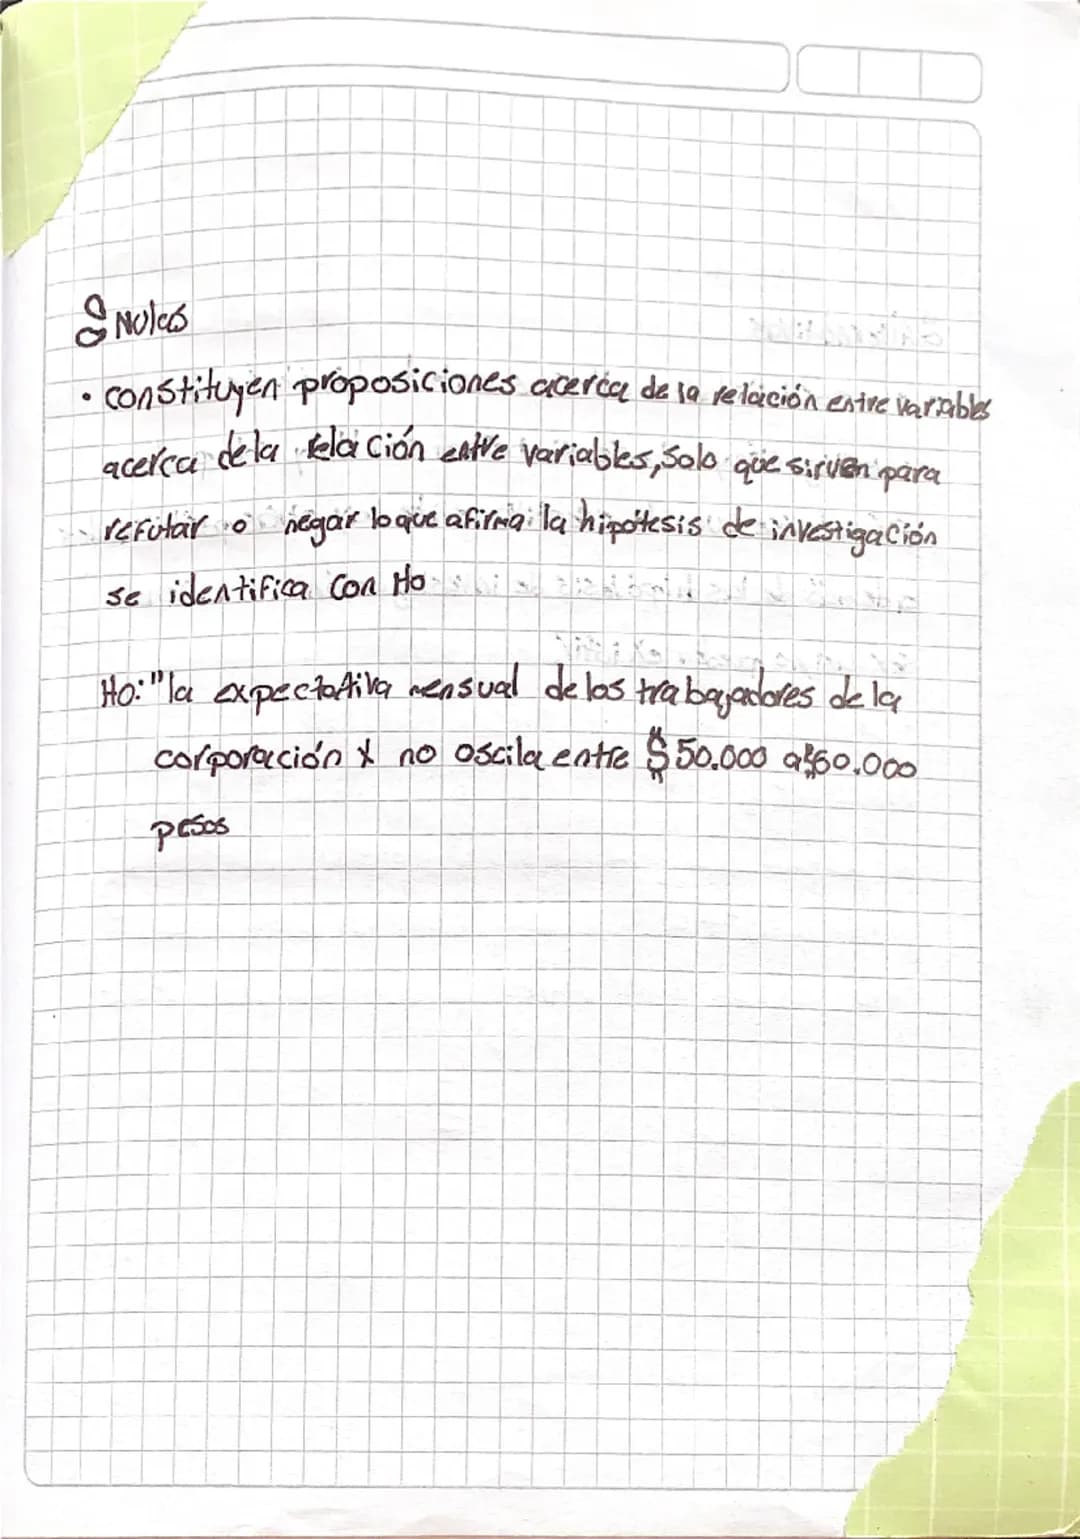 Nulas
· constituyen proposiciones acerca de la relación entre variables
acerca de la relación entre variables, solo que sirven para
refutar o negar lo que afirma la hipótesis de investigación
se identifica con Ho
Ho: "la expectativa mensual de los trabajadores de la
corporación X no oscila entre $50.000 a $60.000
pesos